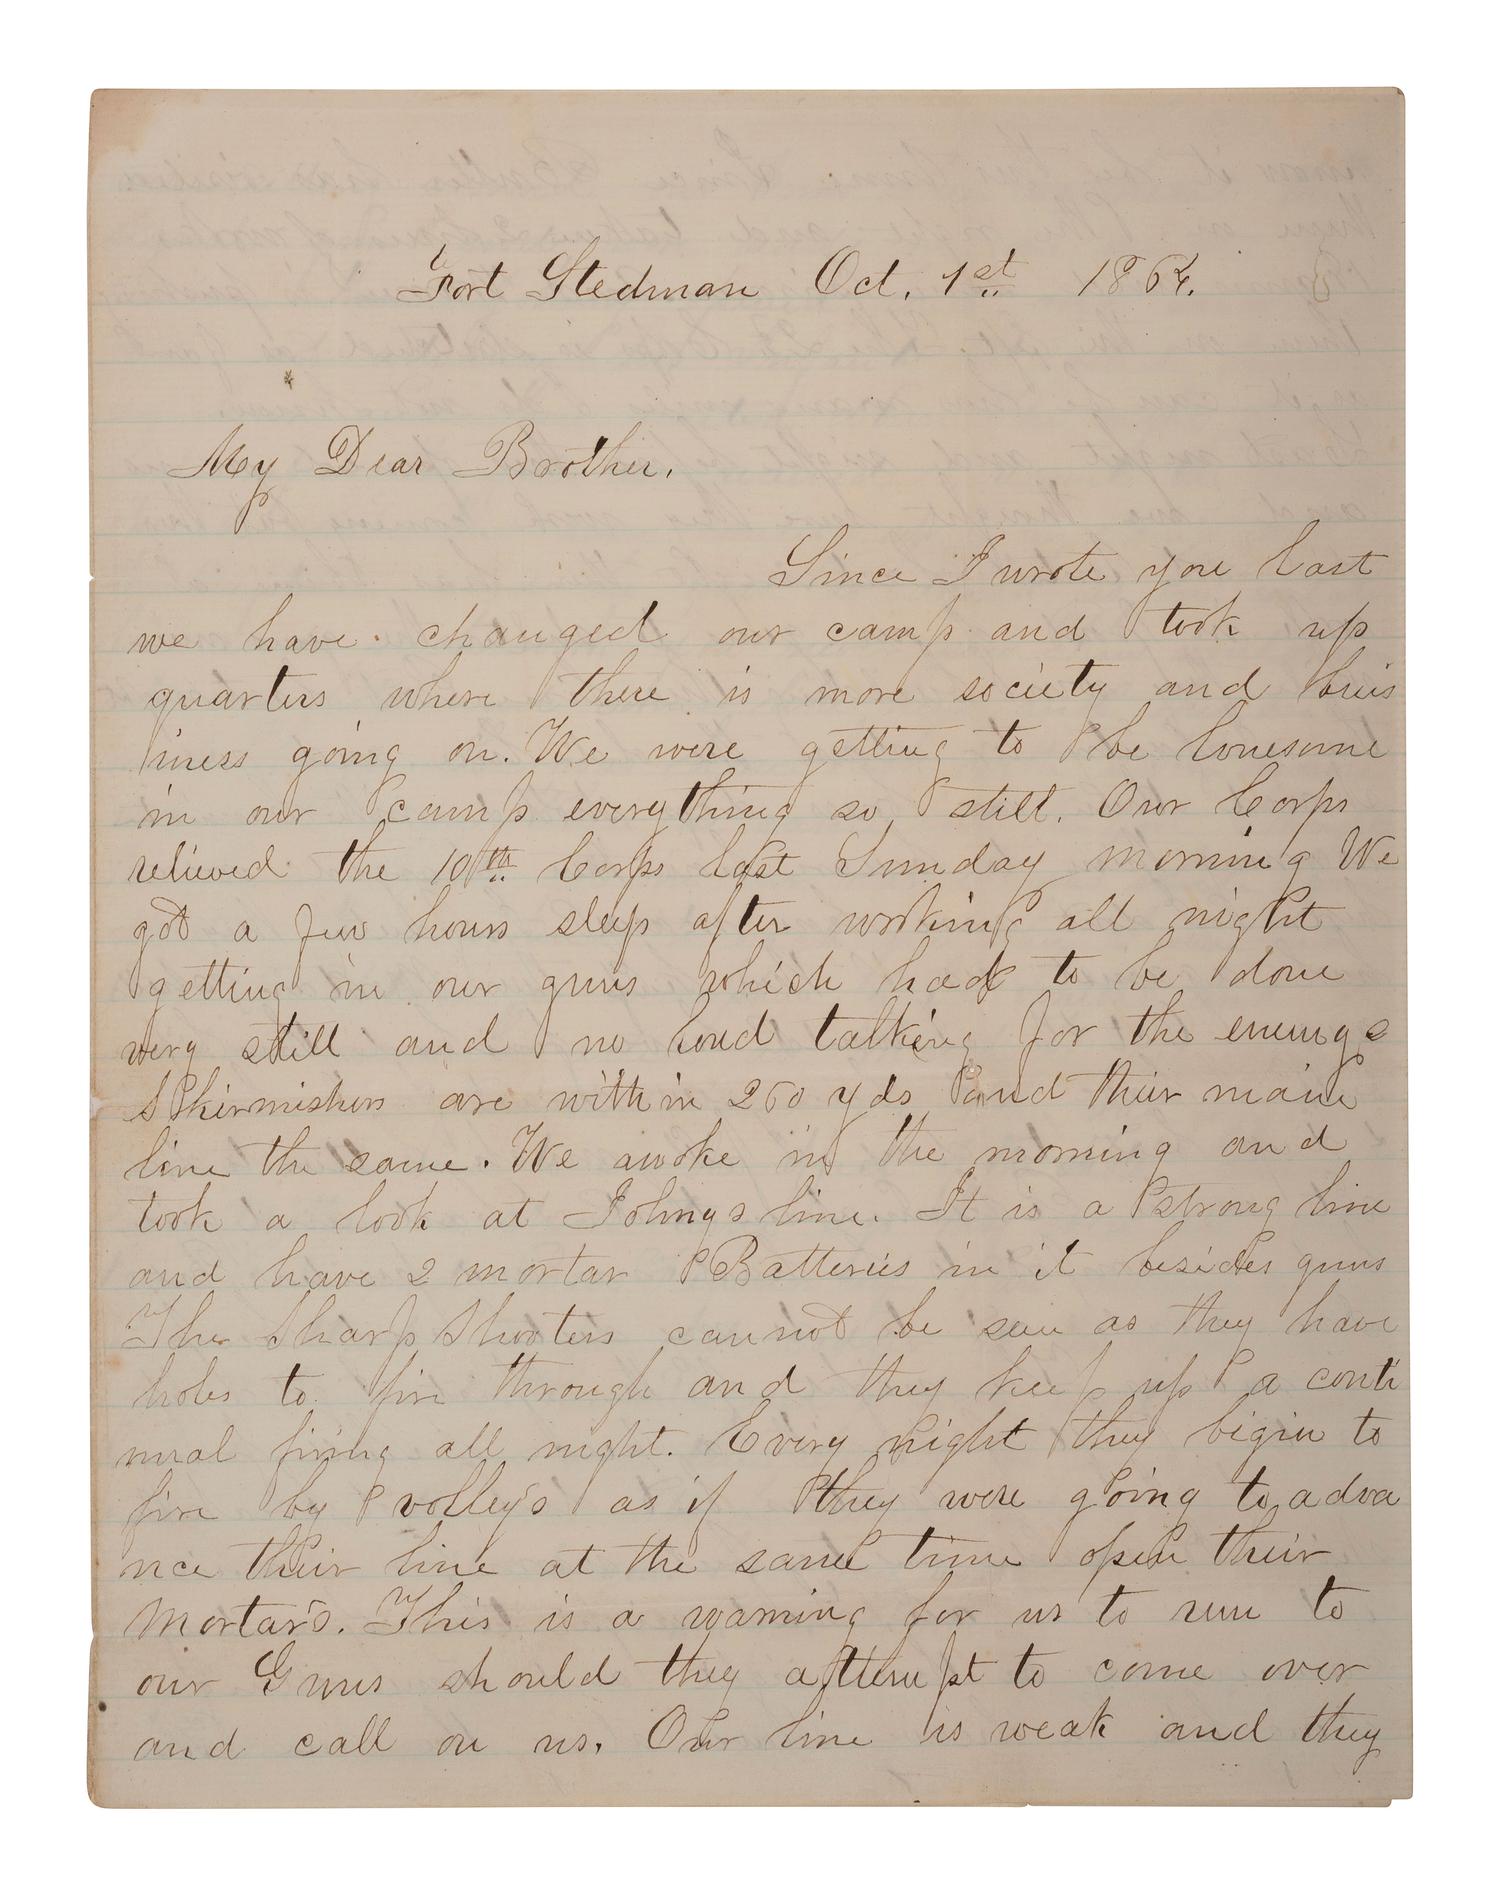 Fort Stedman Oct. 1st 1864.
My Dear Brother,
Since I wrote you last
we have changed our camp and took up
quarters where there is more society and buis
iness going on. We were getting to be lonesome
in our camp everything so still. Our Corps
relieved the 10th Corps last Sunday morning We
got a few hours sleep after working all night
getting in our guns which had to be done
very still and no loud talking for the enemys
Skirmishers are within 200 yds and their main
line the same. We awoke in the morning and
took a look at Johnys line. It is a strong line
and have 2 mortar Batteries in it besides guns
The Sharp Shooters cannot be seen as they have
holes to fire through and they keep up a conti
nual firing all night. Every night they begin to
fire by volley's as if they were going to adva
nce their line at the same time open their
Mortars. This is a warning for us to run to
our Guns should they attempt to come over
and call on us. Our line is weak and they